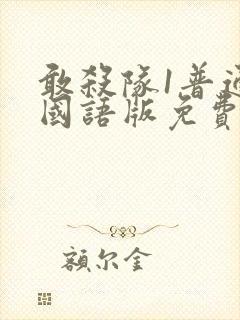 敢殺隊1普通
國語版免費
額尔金